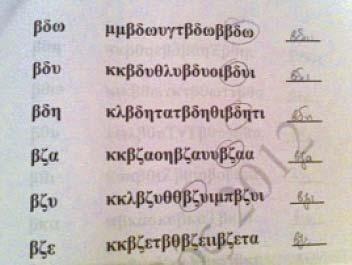 βδω μμβδωυγτβδωββδω
βδυ κκβδυθλυβδυοιβδυι
βδη κλβδητατβδηθιβδητι
βζα κκβζαοηβζαυυβζαα
βζυ κκλβζυθθβζυιμπβζυι
βζε κκβζετβθβζειιβζετα
2012